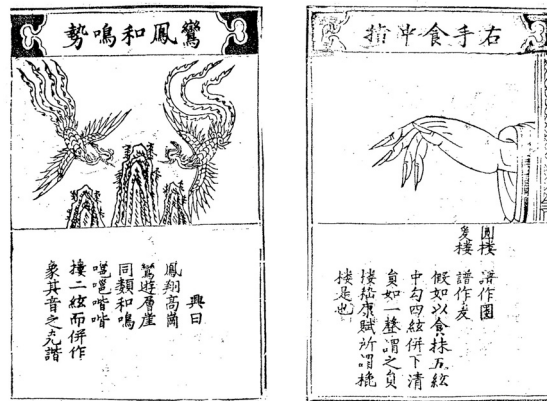 右手食中指
譜作圏
譜作
假如以食抹五絃
中勾四絃併下清
員如一聲謂之員
摟嵇康賦所謂
摟是也
鸞鳳和鳴勢
興曰
鳳翔高崗
鸞遊層崖
同類和鳴
嗈嗈喈喈
摟二絃而併作
象其音之克諧